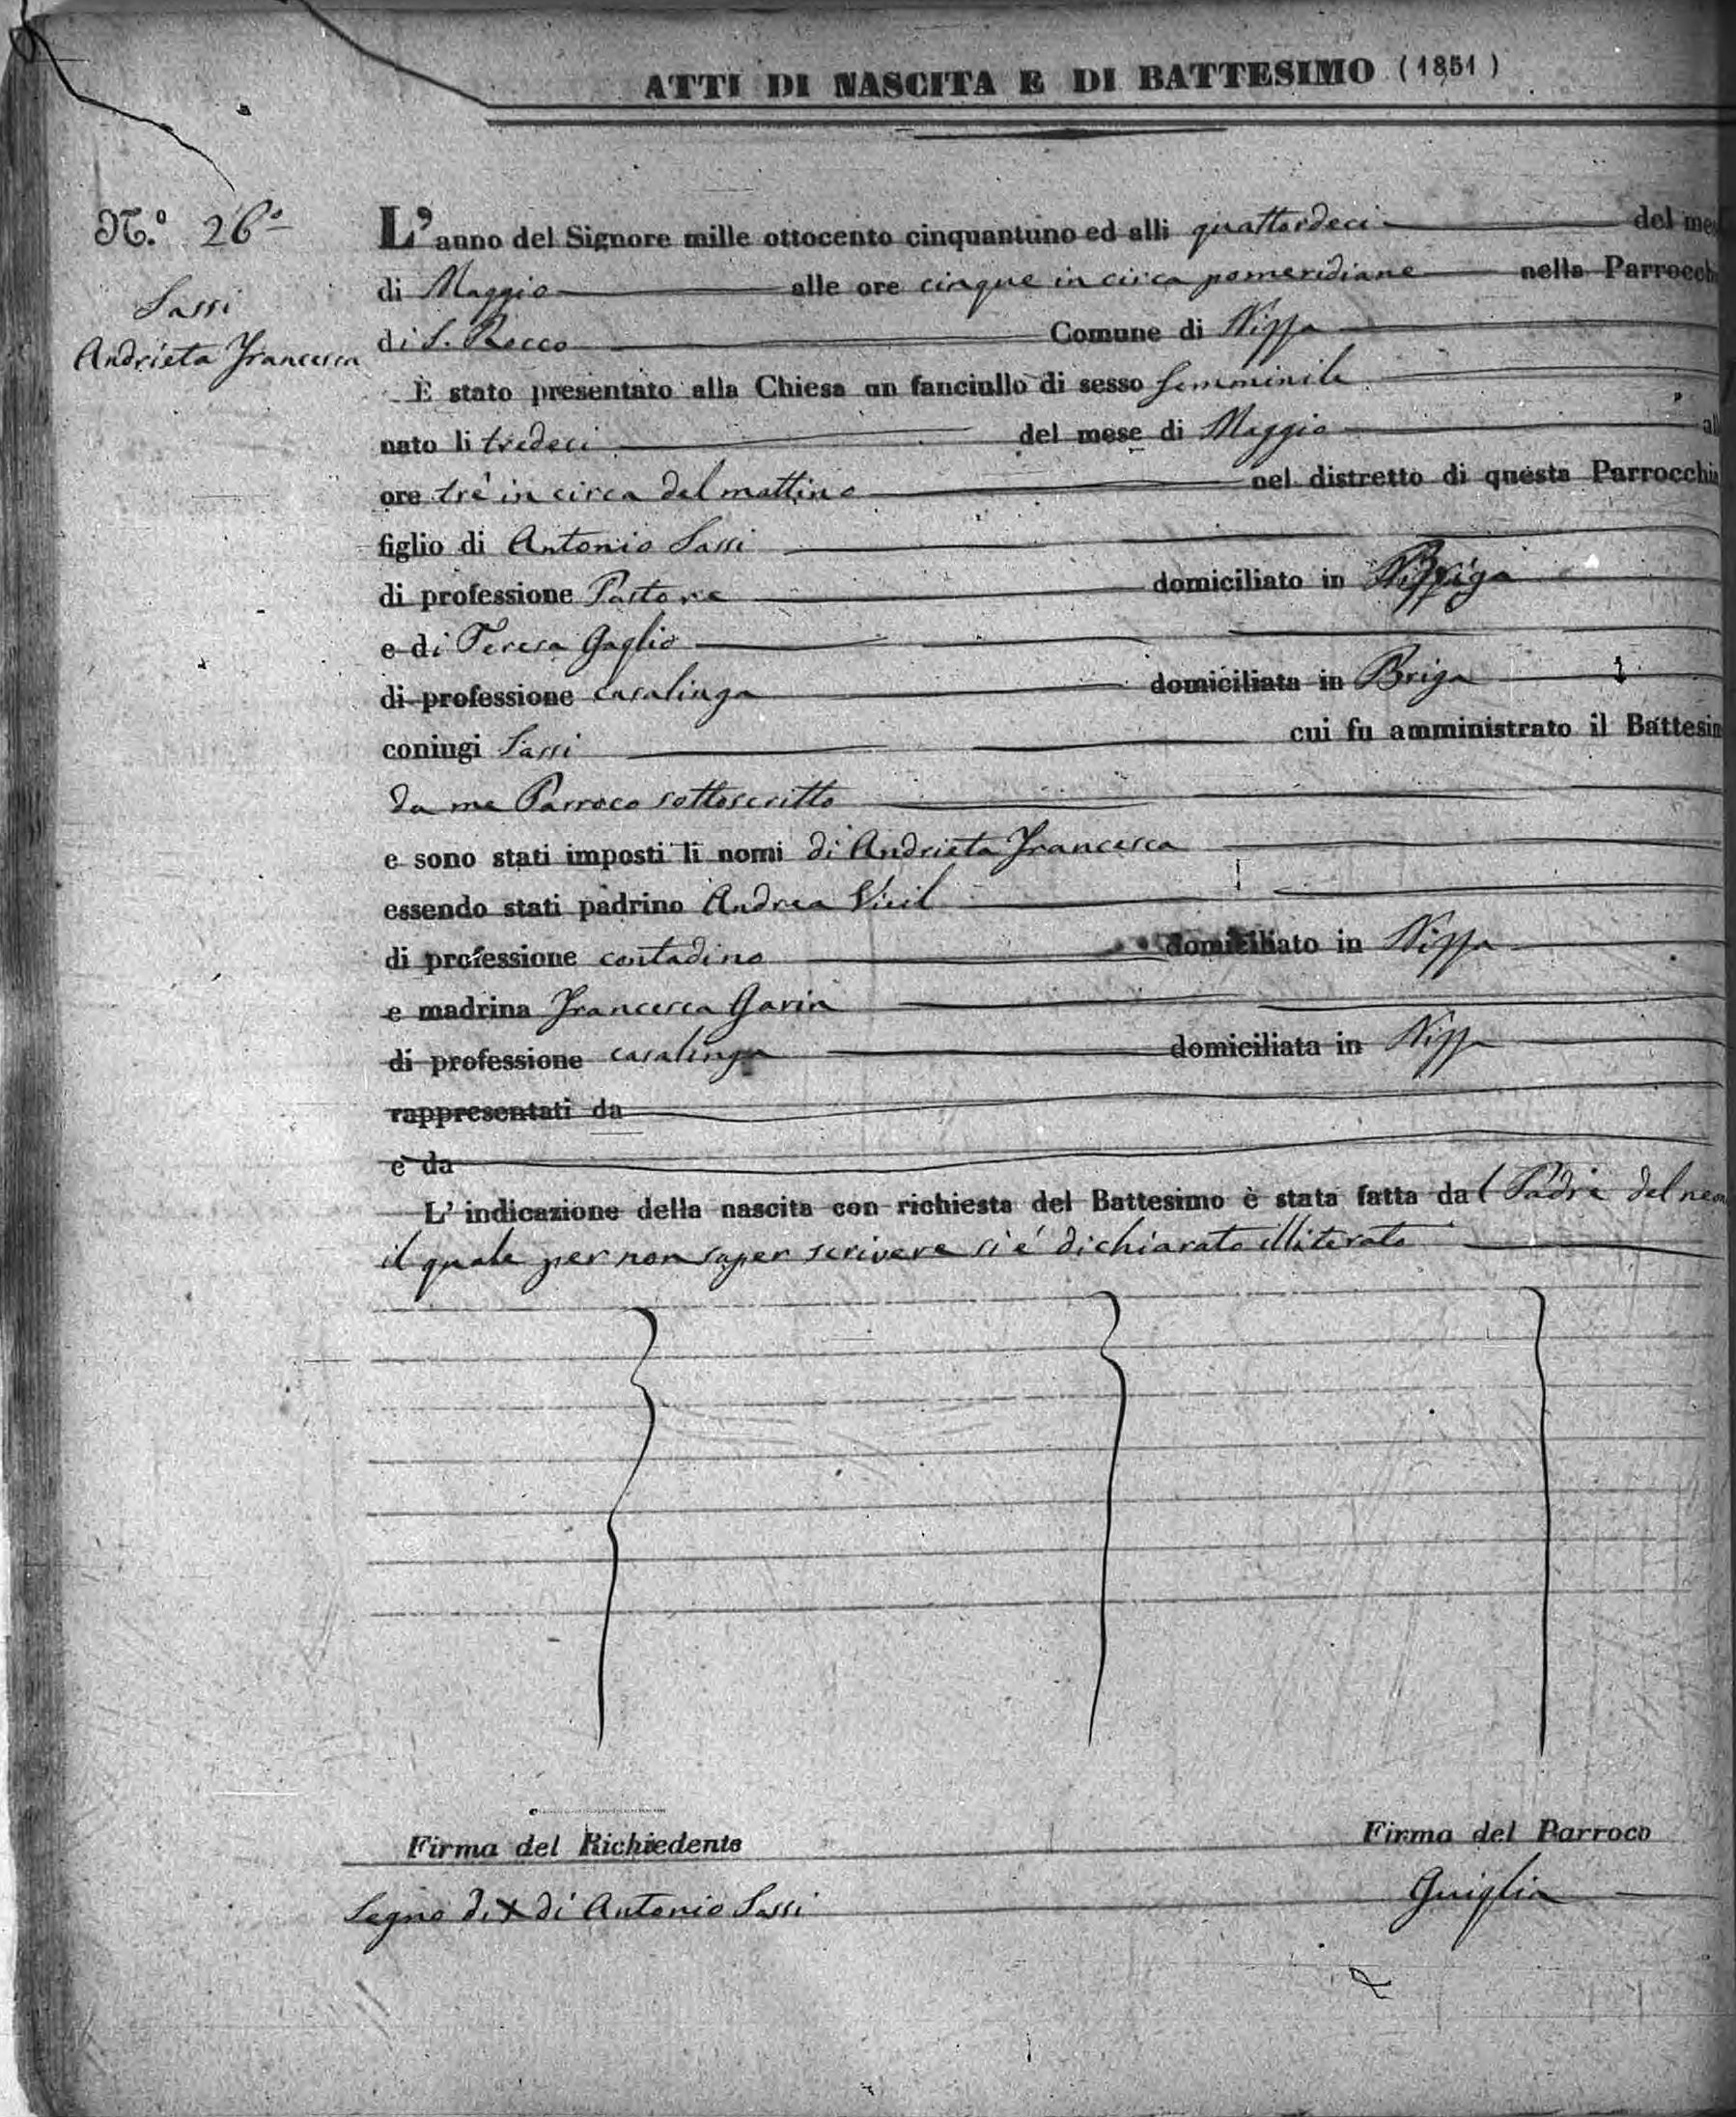 ATTI DI NASCITA E DI BATTESIMO (1851)
N.º 26º
Sassi
Andrieta Francesca
L'anno del Signore mille ottocento cinquantuno ed alli quattordeci del mes
di Maggio alle ore cinque in circa pomeridiane nella Parrocchi
di S. Rocco Comune di Nizza
È stato presentato alla Chiesa un fanciullo di sesso femminile
nato li tredeci del mese di Maggio al
ore tré in circa del mattino nel distretto di questa Parrocchia
figlio di Antonio Sassi
di professione Pastore domiciliato in Briga
e di Teresa Gaglio
di professione casalinga domiciliata in Briga
coniugi Sassi cui fu amministrato il Battesim
da me Parroco sottoscritto
e sono stati imposti li nomi di Andrieta Francesca
essendo stati padrino Andrea
di professione contadino domiciliato in Nizza
e madrina Francesca Gavin
di professione casalinga domiciliata in Nizza
rappresentati da
e da
L'indicazione della nascita con richiesta del Battesimo è stata fatta dal Padre del neo
il quale per non saper scrivere si é dichiarato illiterato
Firma del Richiedente Firma del Parroco
Segno di X di Antonio Sassi Guiglia